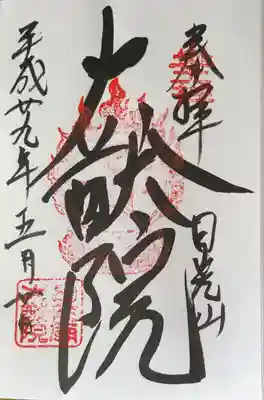 奉拝
日光山
大猷院
平成廿九年五月廿日